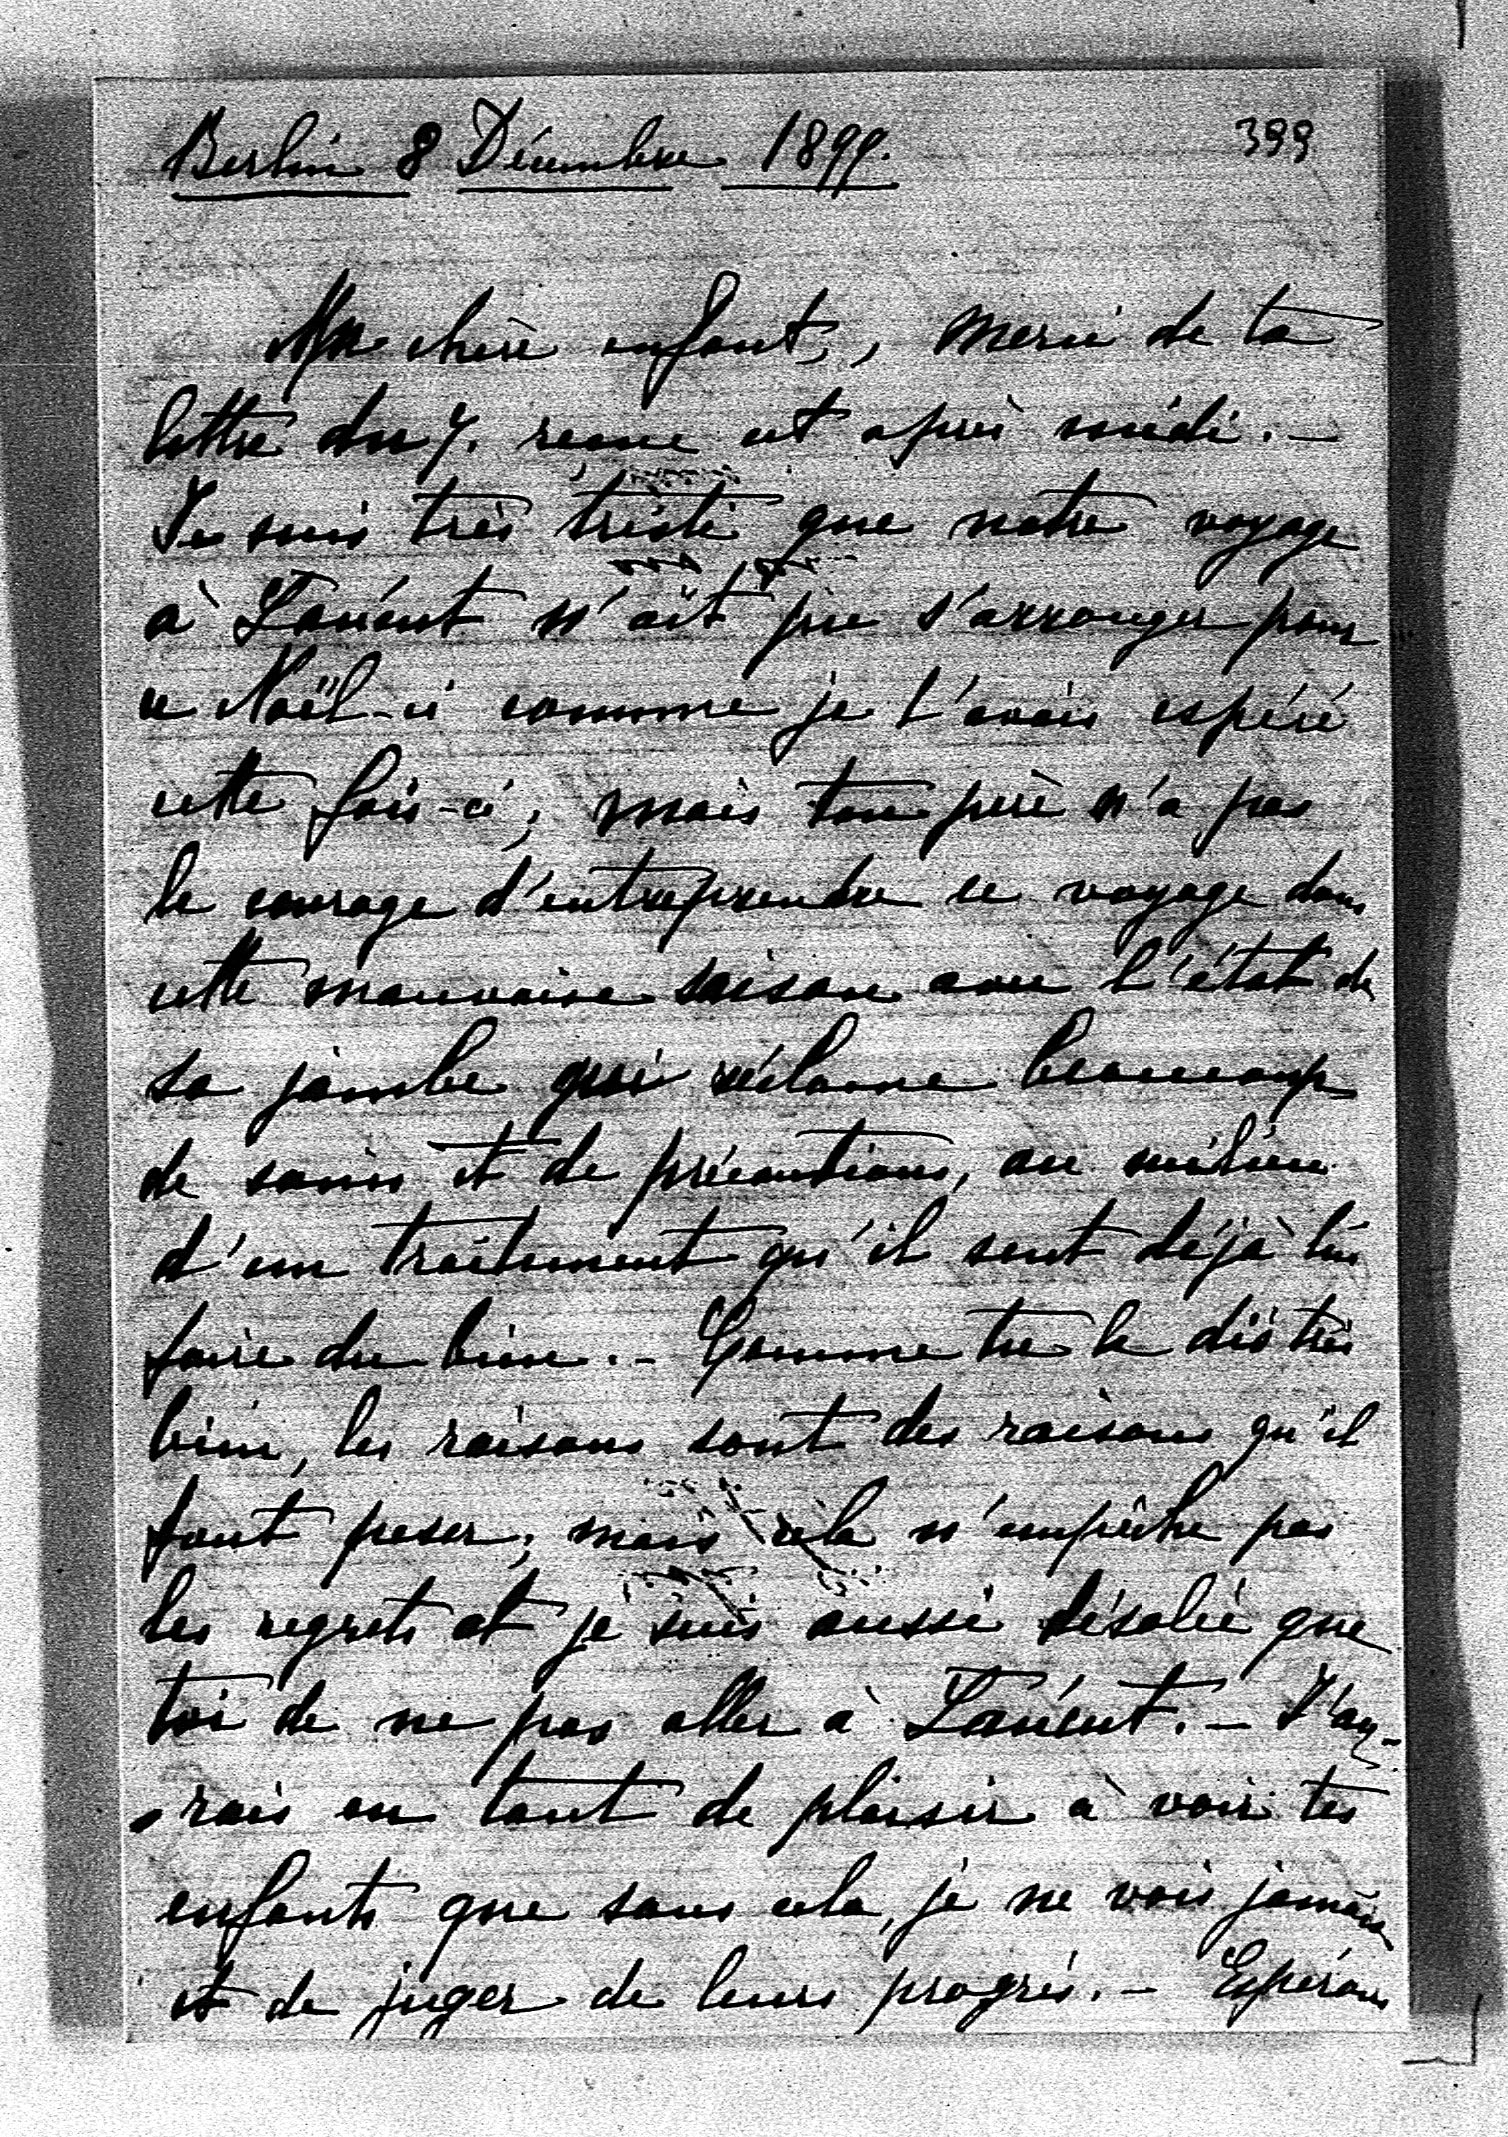 Berlin 8 Décembre 1899. 399
Ma chère enfant, merci de ta
lettre du 7. reçue cet après midi. —
Je suis très triste que notre voyage
à Lanént n'ait pu s'arranger pour
ce Noël-ci comme je l'avais espéré
cette fois-ci, mais ton père n'a pas
le courage d'entreprendre ce voyage dans
cette mauvaise saison avec l'état de
sa jambe qui réclame beaucoup
de soins et de précautions, au milieu
d'un traitement qu'il sent déjà lui
faire du bien. — Comme tu le dis très
bien, les raisons sont des raisons qu'il
faut peser; mais cela n'empêche pas
les regrets et je suis aussi désolée que
toi de ne pas aller à Lanént. — J'au-
rais eu tant de plaisir à voir tes
enfants que sans cela, je ne vois jamais
et de juger de leurs progrès. — Espérons